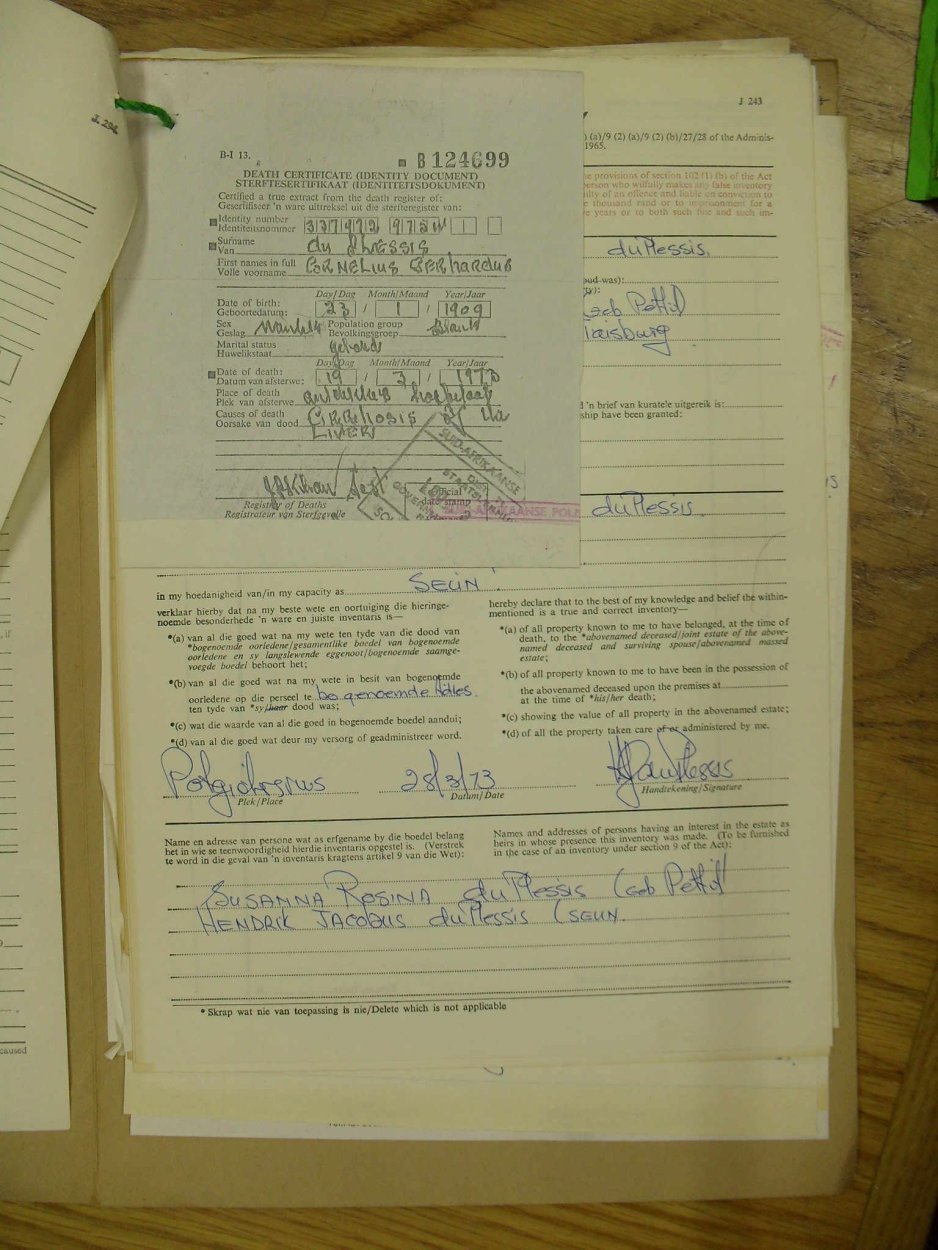 J. 294.
J 243
(a)/9 (2) (a)/9 (2) (b)/27/28 of the Adminis-
1965.
e provisions of section 102 (1) (b) of the Act
person who wilfully makes any false inventory
ilty of an offence and liable on conviction to
e thousand rand or to imprisonment for a
e years or to both such fine and such im-
B-I 13.
B 124699
DEATH CERTIFICATE (IDENTITY DOCUMENT)
STERFTESERTIFIKAAT (IDENTITEITSDOKUMENT)
Certified a true extract from the death register of:
Gesertifiseer 'n ware uittreksel uit die sterfteregister van:
Identity number
Identiteitsnommer
Surname
Van du Plessis
First names in full
Volle voorname CORNELIUS GERHARDUS
Day/Dag Month/Maand Year/Jaar
Date of birth:
Geboortedatum: 23 / 1 / 1909
Sex Population group
Geslag Manlik Bevolkingsgroep Blank
Marital status
Huwelikstaat
Day/Dag Month/Maand Year/Jaar
Date of death:
Datum van afsterwe: 19 / 3 / 1973
Place of death
Plek van afsterwe hospitaal
Causes of death
Oorsake van dood CIRRHOSIS of the
LIVER
Registrar of Deaths
Registrateur van Sterfgevalle
Official
date stamp
SUID-AFRIKAANSE
SUID-AFRIKAANSE POLI
du Plessis.
oud was):
ty):
(geb Pettit
d 'n brief van kuratele uitgereik is:
ship have been granted:
du Plessis.
in my hoedanigheid van/in my capacity as SEUN
verklaar hierby dat na my beste wete en oortuiging die hieringe-
noemde besonderhede 'n ware en juiste inventaris is—
*(a) van al die goed wat na my wete ten tyde van die dood van
*bogenoemde oorledene/gesamentlike boedel van bogenoemde
oorledene en sy langslewende eggenoot/bogenoemde saamge-
voegde boedel behoort het;
*(b) van al die goed wat na my wete in besit van bogenoemde
oorledene op die perseel te bogenoemde Adres.
ten tyde van *sy/haar dood was;
*(c) wat die waarde van al die goed in bogenoemde boedel aandui;
*(d) van al die goed wat deur my versorg of geadministreer word.
hereby declare that to the best of my knowledge and belief the within-
mentioned is a true and correct inventory—
*(a) of all property known to me to have belonged, at the time of
death, to the *abovenamed deceased/joint estate of the above-
named deceased and surviving spouse/abovenamed massed
estate;
*(b) of all property known to me to have been in the possession of
the abovenamed deceased upon the premises at
at the time of *his/her death;
*(c) showing the value of all property in the abovenamed estate;
*(d) of all the property taken care of or administered by me.
Potgietersrus 28/3/73 HJ du Plessis
Plek/Place Datum/Date Handtekening/Signature
Name en adresse van persone wat as erfgename by die boedel belang
het in wie se teenwoordigheid hierdie inventaris opgestel is. (Verstrek
te word in die geval van 'n inventaris kragtens artikel 9 van die Wet):
Names and addresses of persons having an interest in the estate as
heirs in whose presence this inventory was made. (To be furnished
in the case of an inventory under section 9 of the Act):
SUSANNA ROSINA du Plessis (geb Pettit)
HENDRIK JACOBUS du Plessis (SEUN.
* Skrap wat nie van toepassing is nie/Delete which is not applicable
caused